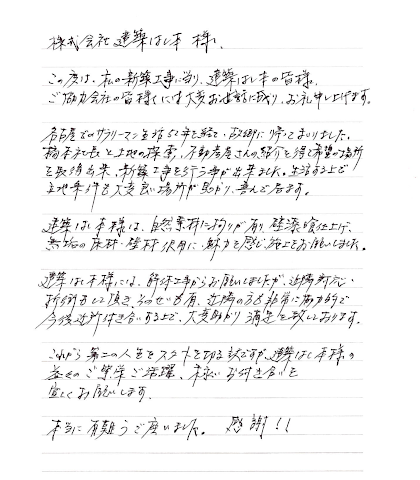 株式会社 建築はし本 様、
この度は、私の新築工事に当り、建築はし本の皆様、
ご協力会社の皆様くには大変お世話に成り、お礼申し上げます。
名古屋でのサラリーマン生活を経て、故郷に帰ってまいりました。
橋本社長と土地の探索、不動産屋さんの紹介を得て希望の場所
を取得出来、新築工事を行う事が出来ました。生活する上で
土地条件も大変良い場所が見つかり、喜んで居ます。
建築はし本様は、自然素材に拘りが有り、壁漆喰仕上げ、
無垢の床材・壁材使用に、魅力を感じ施工をお願いしました。
建築はし本様には、解体工事からお願いしましたが、近隣対応・
折衝をして頂き、そのせいも有、近隣の方も非常に協力的で
今後近所付き合いする上で、大変助かり満足を致しております。
これから第二の人生をスタートを切る訳ですが、建築はし本様の
益々のご繁栄ご活躍、末永いお付き合いを
宜しくお願いします。
本当に有難うご座いました。 感謝!!